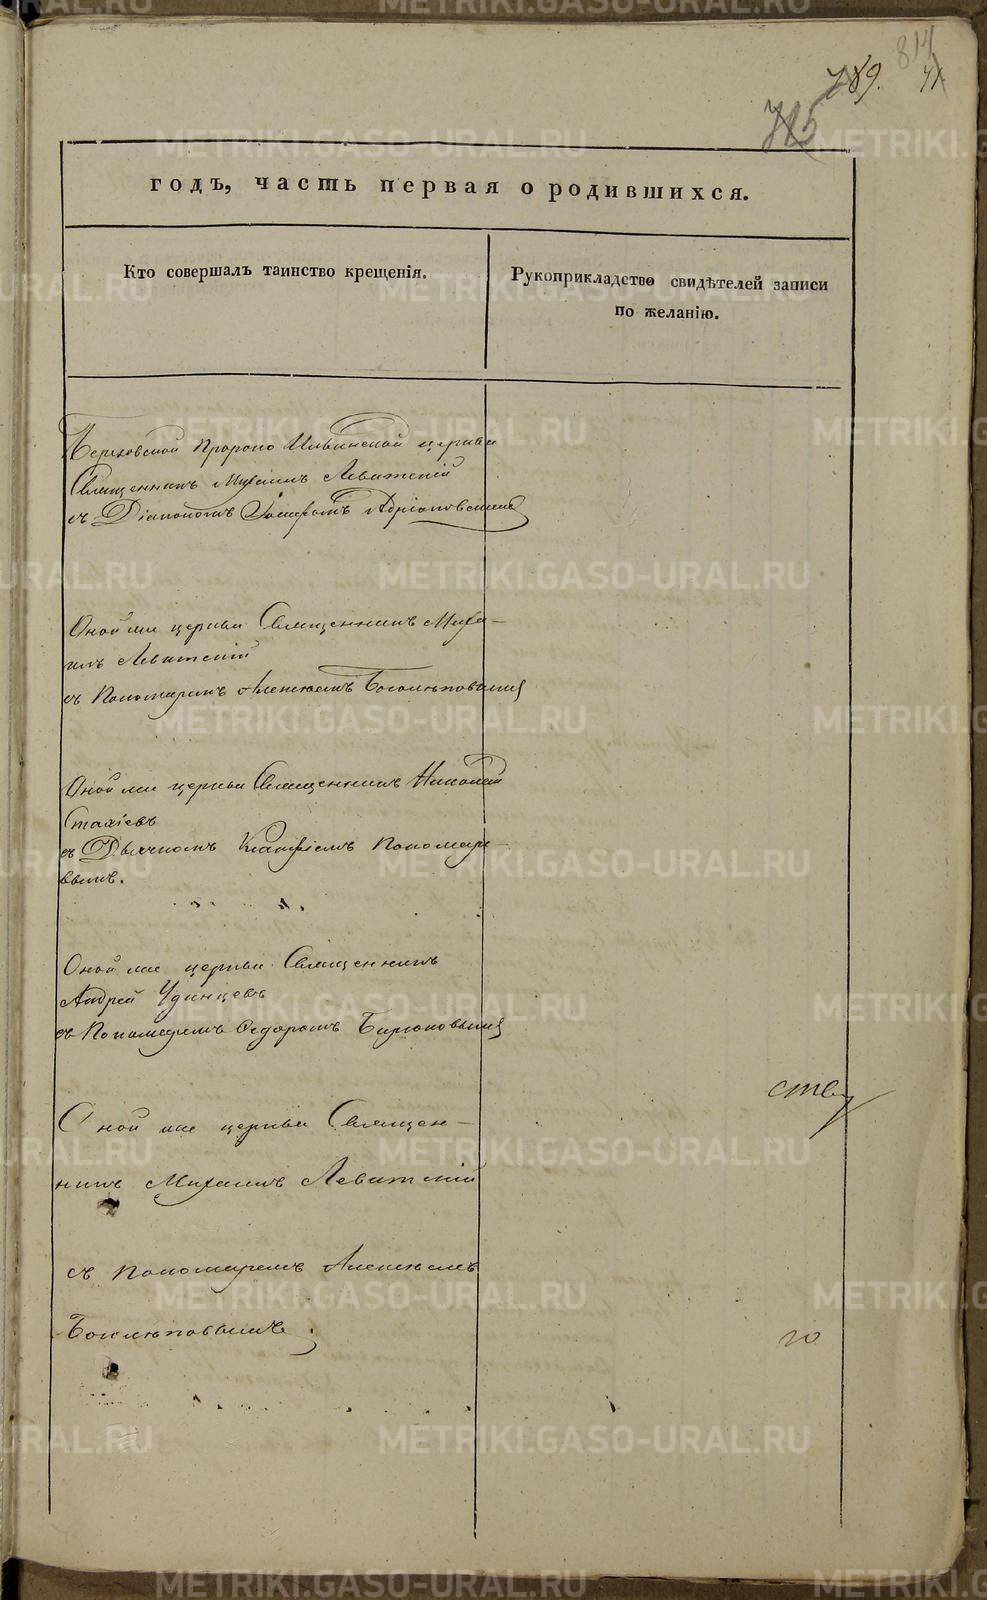 814
789.
41
715
годъ, часть первая о родившихся.
Кто совершалъ таинство крещенія.
Рукоприкладство свидѣтелей записи
по желанію.
Пророко Ильинской церкви
Священникъ Михаилъ Левитскій
съ Діакономъ Адріановскимъ
Оной же церкви Священникъ Миха-
илъ Левитскій
съ Пономаремъ Алексѣемъ Боголѣповымъ
Оной же церкви Священникъ Николай
Стахіевъ
съ Дьячкомъ Пономаре-
вымъ.
Оной же церкви Священникъ
Андрей Удинцевъ
съ Пономаремъ Ѳедоромъ Бирюковымъ
Оной же церкви Священ-
никъ Михаилъ Левитскій
съ Пономаремъ Алексѣемъ
Боголѣповымъ.
METRIKI.GASO-URAL.RU